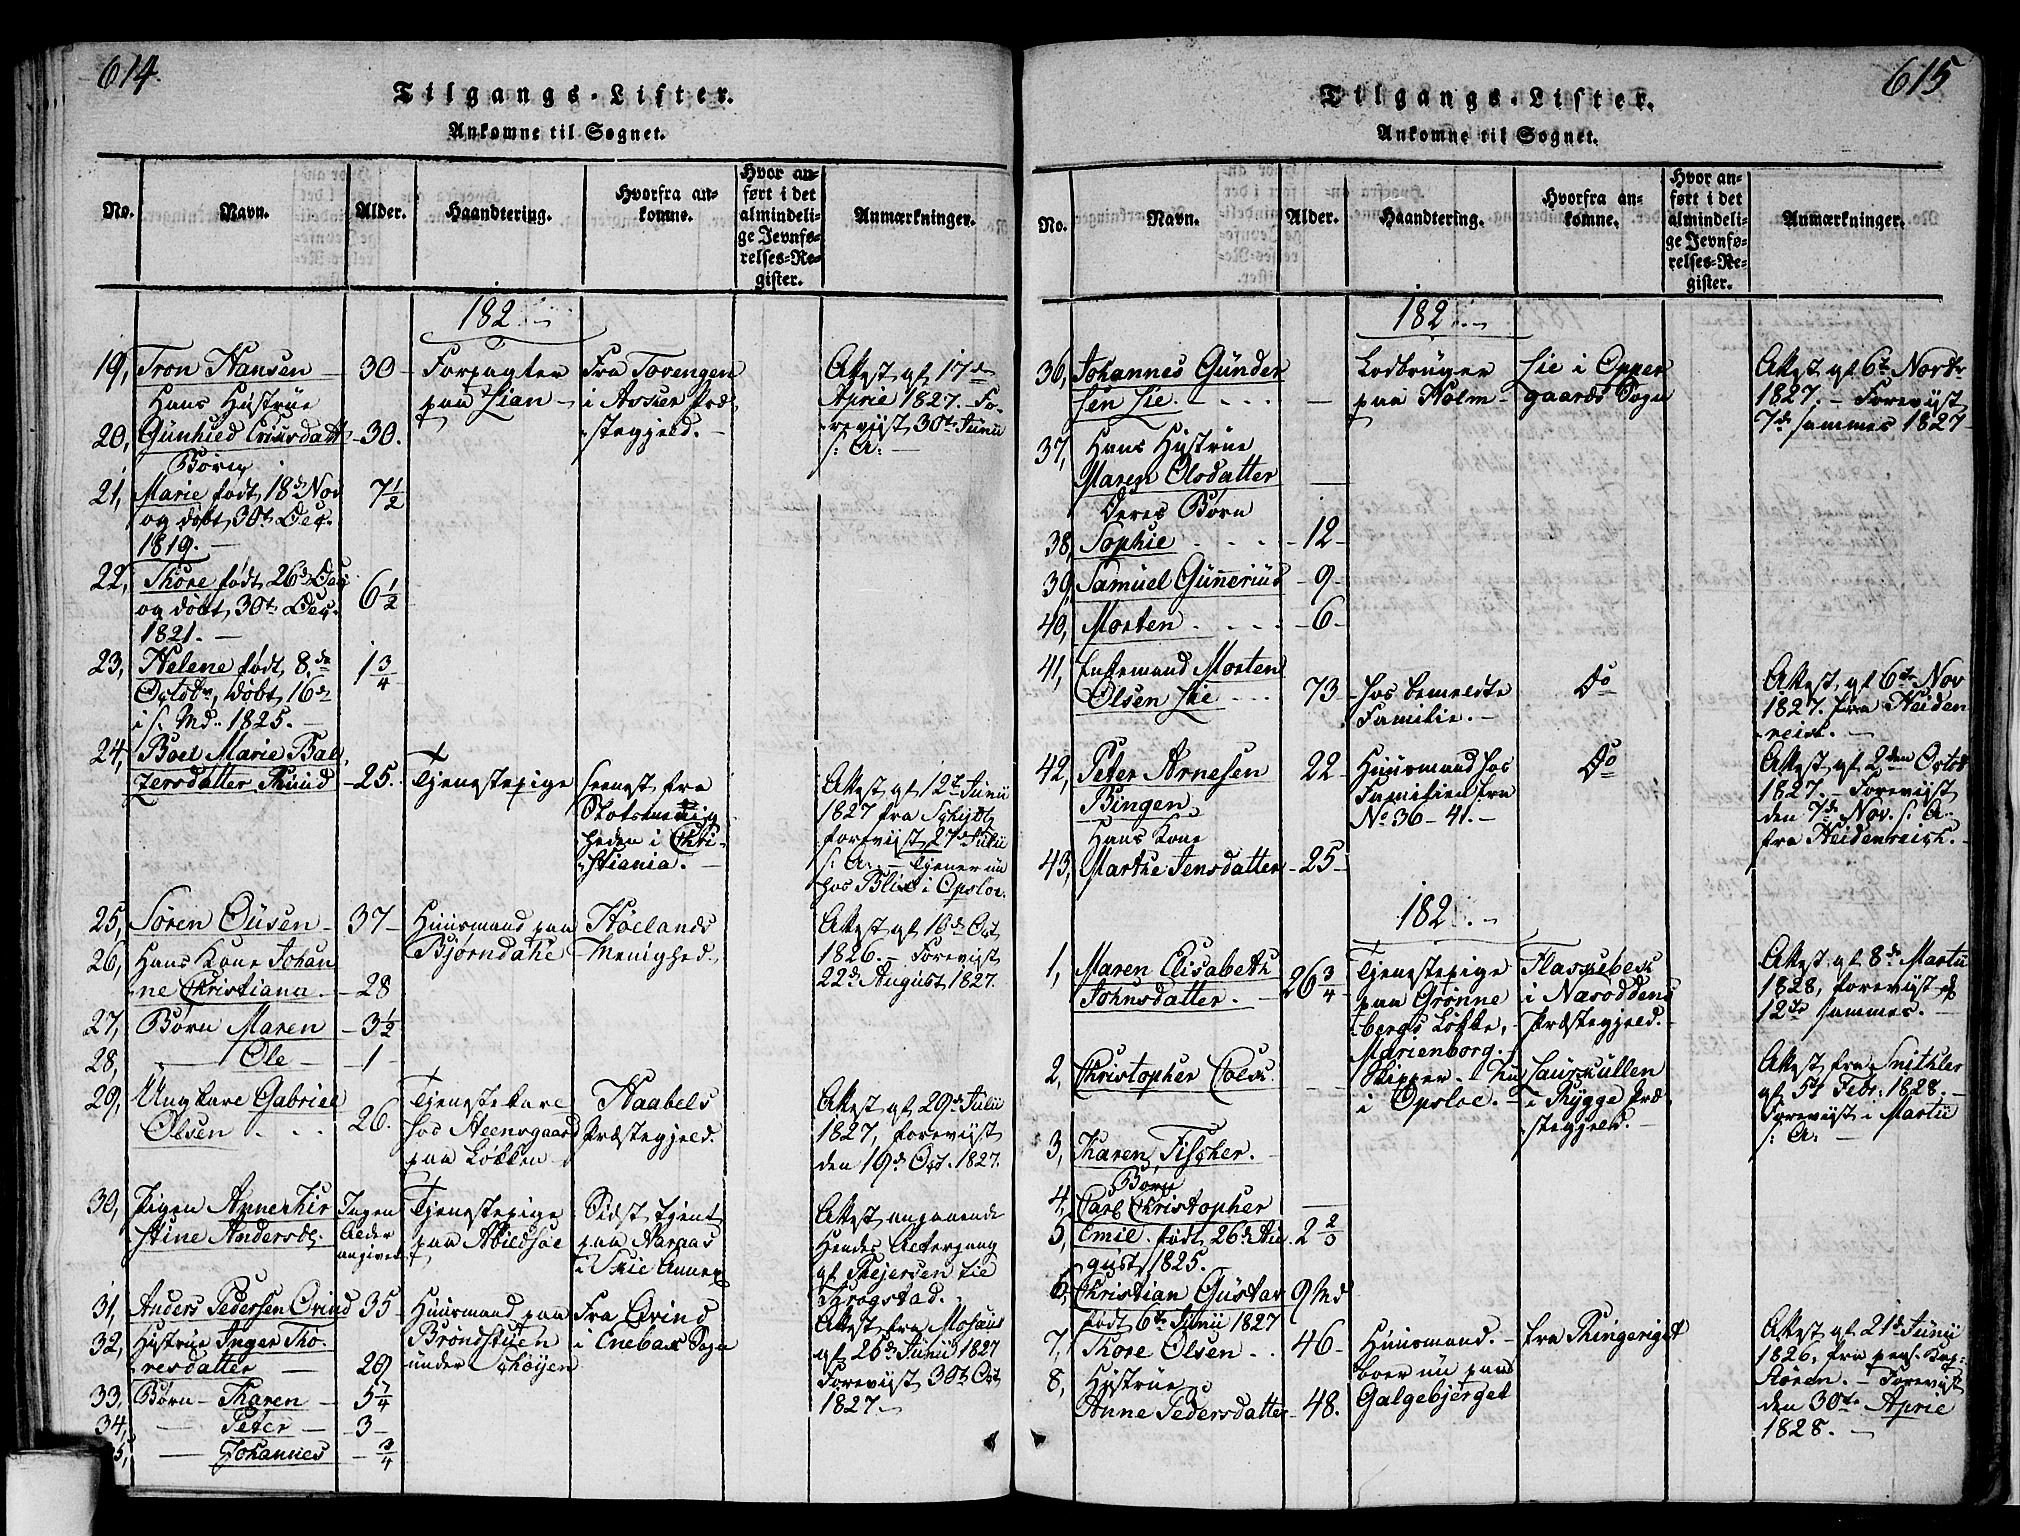 614.
Tilgangs-Lister.
Ankomne til Sognet.
No.
Navn.
Alder.
Haandtering.
Hvorfra an-
komne.
Hvor an-
ført i det
almindeli-
ge Jevnfø-
relses-Re-
gister.
Anmærkninger.
182
19, Tron Hansen 30 Forpagter Fra Tovengen Attest af 17de
Hans Hustrue paa Lian i Assier Præ- April 1827. Fo-
20, Gunhild Eriksdatt 30. stegjeld. revist 30te Junii
Børn s: A:
21, Marie født 18de Nov 7 1/2
og døbt 30te Dec.
1819.
22, Thore født 26de Dec 6 1/2
og døbt 30te Dec.
1821.
23, Helene født 8de 1 3/4
Octobr, døbt 16de
i s. Md. 1825.
24, Boel Marie Bal
zersdatter Thuud 25. Tjenestepige seenest fra Attest af 12te Junii
1827 fra
forevist 27de Julii
heden i Chri- s: A: Tjener nu
stiania. hos Blix i Opsloe.
25, Søren Olisen 37 Huusmand paa Høelands Attest af 16de Oct
26, Hans Kone Johan Bjørndahl Menighed. 1826. Forevist
ne Christiana 28 22de August 1827.
27, Børn Maren 3 1/2
28, Ole 1
29, Ungkarl Gabriel Tjenestekarl Haabels Attest af 29de Julii
Olsen 26. hos Steensgaard Præstegjeld. 1827, forevist
paa Løkken den 19de Oct. 1827.
30, Pigen Anne Kir Ingen Tjenestepige Sidst tjent Attest angaaende
stine Andersd. Alder paa Abildsøe paa Haraas Hendes Altergang
angivet i Skie Annex af Thejersen
Krogstad.
31, Anders Pedersen Qvind 35 Huusmand paa Fra Qvind Attest fra
32, Hustrue Inger Tho- Brondstuen i Enebak Sogn af 26de Junii 1827
resdatter 29 under Schøyen Forevist 30te Oct
33, Børn Karen 5 1827.
34, Peter 3
Johannes 3/4
615
Tilgangs-Lister.
Ankomne til Sognet.
No.
Navn.
Alder.
Haandtering.
Hvorfra an-
komne.
Hvor an-
ført i det
almindeli-
ge Jevnfø-
relses-Re-
gister.
Anmærkninger.
182
36, Johannes Gunder Lodbruger Lie i Opper Attest af 6te Novbr
sen Lie paa Holm gaards Sogn 1827. Forevist
37, Hans Hustrue 7de sammes 1827
Maren Olsdatter
Deres Børn
38, Sophie 12
39, Samuel Gunnerius 9
40, Morten 6
41, Enkemand Morten Attest af 6te Nov
Olsen Lie 73 hos bemeldte Do 1827. fra Heiden
Familie. reich.
42, Peter Arnesen 22 Huusmand hos Do Attest af 2den Octob
Bingen Familien fra 1827. Forevist
Hans Kone No 36-41. den 7de Nov. s: A:
43, Marthe Jensdatter 25 fra Heidenreich.
182
1, Maren Elisabeth 26 3/4 Tjenestepige Flaskebek Attest af 8de Martii
Johnsdatter. paa Grønne i Nasoddens 1828, forevist
bergs Løkke, Præstegjeld. 12te sammes.
Marienborg.
2, Christopher Skipper. Nu Laurkullen Attest fra
i Opsloe. i Rygge Præ- af 5te Febr. 1828.
stegjeld. Forevist i Martii
s: A:
3, Karen Fischer.
Børn
4, Carl Christopher
5, Emil født 26de Au 2
gust 1825.
6, Christian Gustav 9 Md
født 6te Junii 1827
7, Thore Olsen 46 Huusmand. fra Ringeriget Attest af 21de Junii
8, Hustrue boer nu paa 1826, fra pers. Kap.
Anne Pedersdatter 48. Galgebjerget Støren. Forevist
den 30te April
1828.